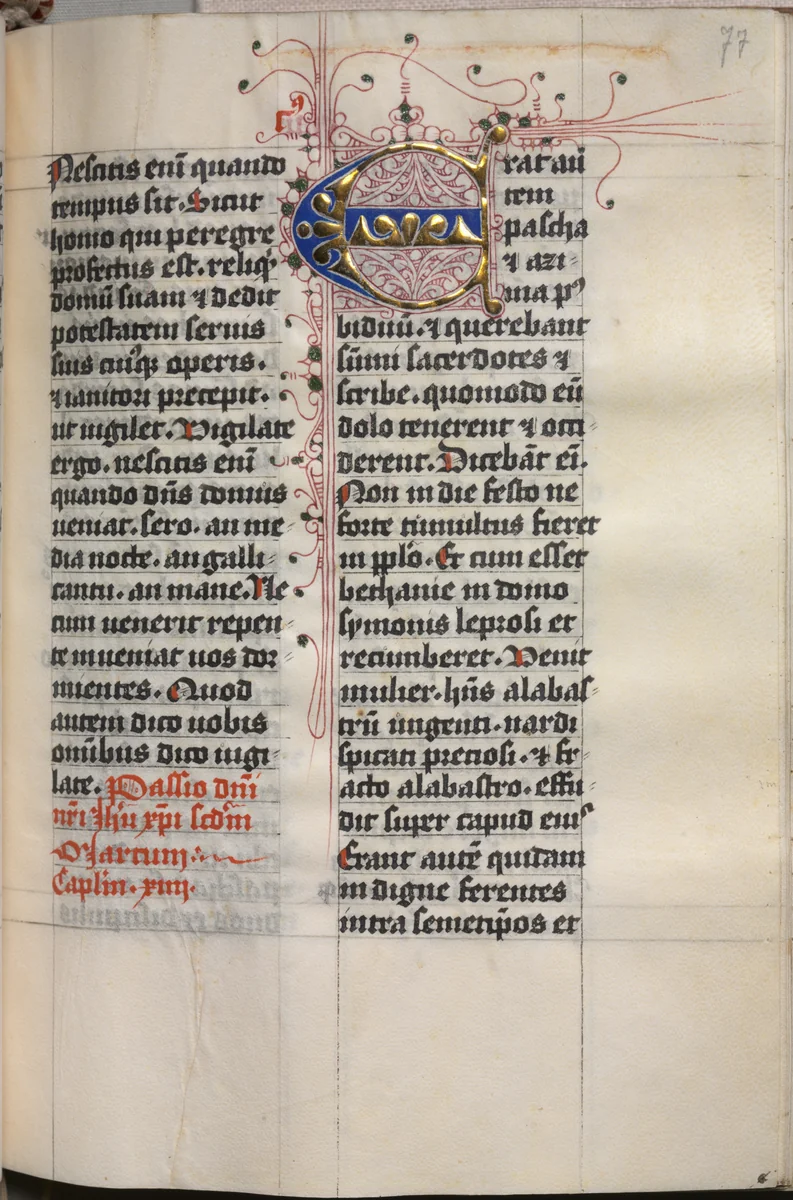 77
Nescitis enī quando
tempus sit. Sicut
homo qui peregre
profectus est. reliqͥt
domū suam ⁊ dedit
potestatem seruis
suis cuiꝰqꝫ operis.
⁊ ianitori precepit.
ut uigilet. Vigilate
ergo. nescitis enī
quando dn̄s domus
ueniat. sero. an me-
dia nocte. an galli-
cantu. an mane. Ne
cum uenerit repen-
te inueniat uos dor-
mientes. Quod
autem dico uobis
omībus dico uigi-
late. Passio dn̄i
nr̄i Ihū xp̄i scdm̄
Marcum.
Caplm. xiiij.
Erat aū
tem
pascha
⁊ azi-
ma pꝰ
biduū. ⁊ querebant
sūmi sacerdotes ⁊
scribe. quomodo eū
dolo tenerent ⁊ occi-
derent. Dicebāt eī.
Non in die festo ne
forte tumultus fieret
in pplo. Et cum esset
bethanie in domo
symonis leprosi et
recumberet. Venit
mulier. hn̄s alabas-
trū ungenti. nardi
spicati preciosi. ⁊ fr-
acto alabastro. effu-
dit super capud eiuꝰ
Erant autē quidam
indigne ferentes
intra semetip̄os et